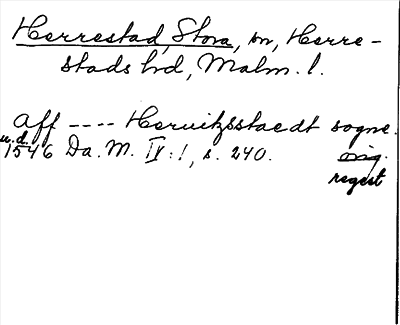 Herrestad, Stora, sn, Herre-
stads hd, Malm. l.
Aff ---- Heruitzstaedt sogne.
u.d.
1546 Da. M. IV:1, s. 240. orig.
regest